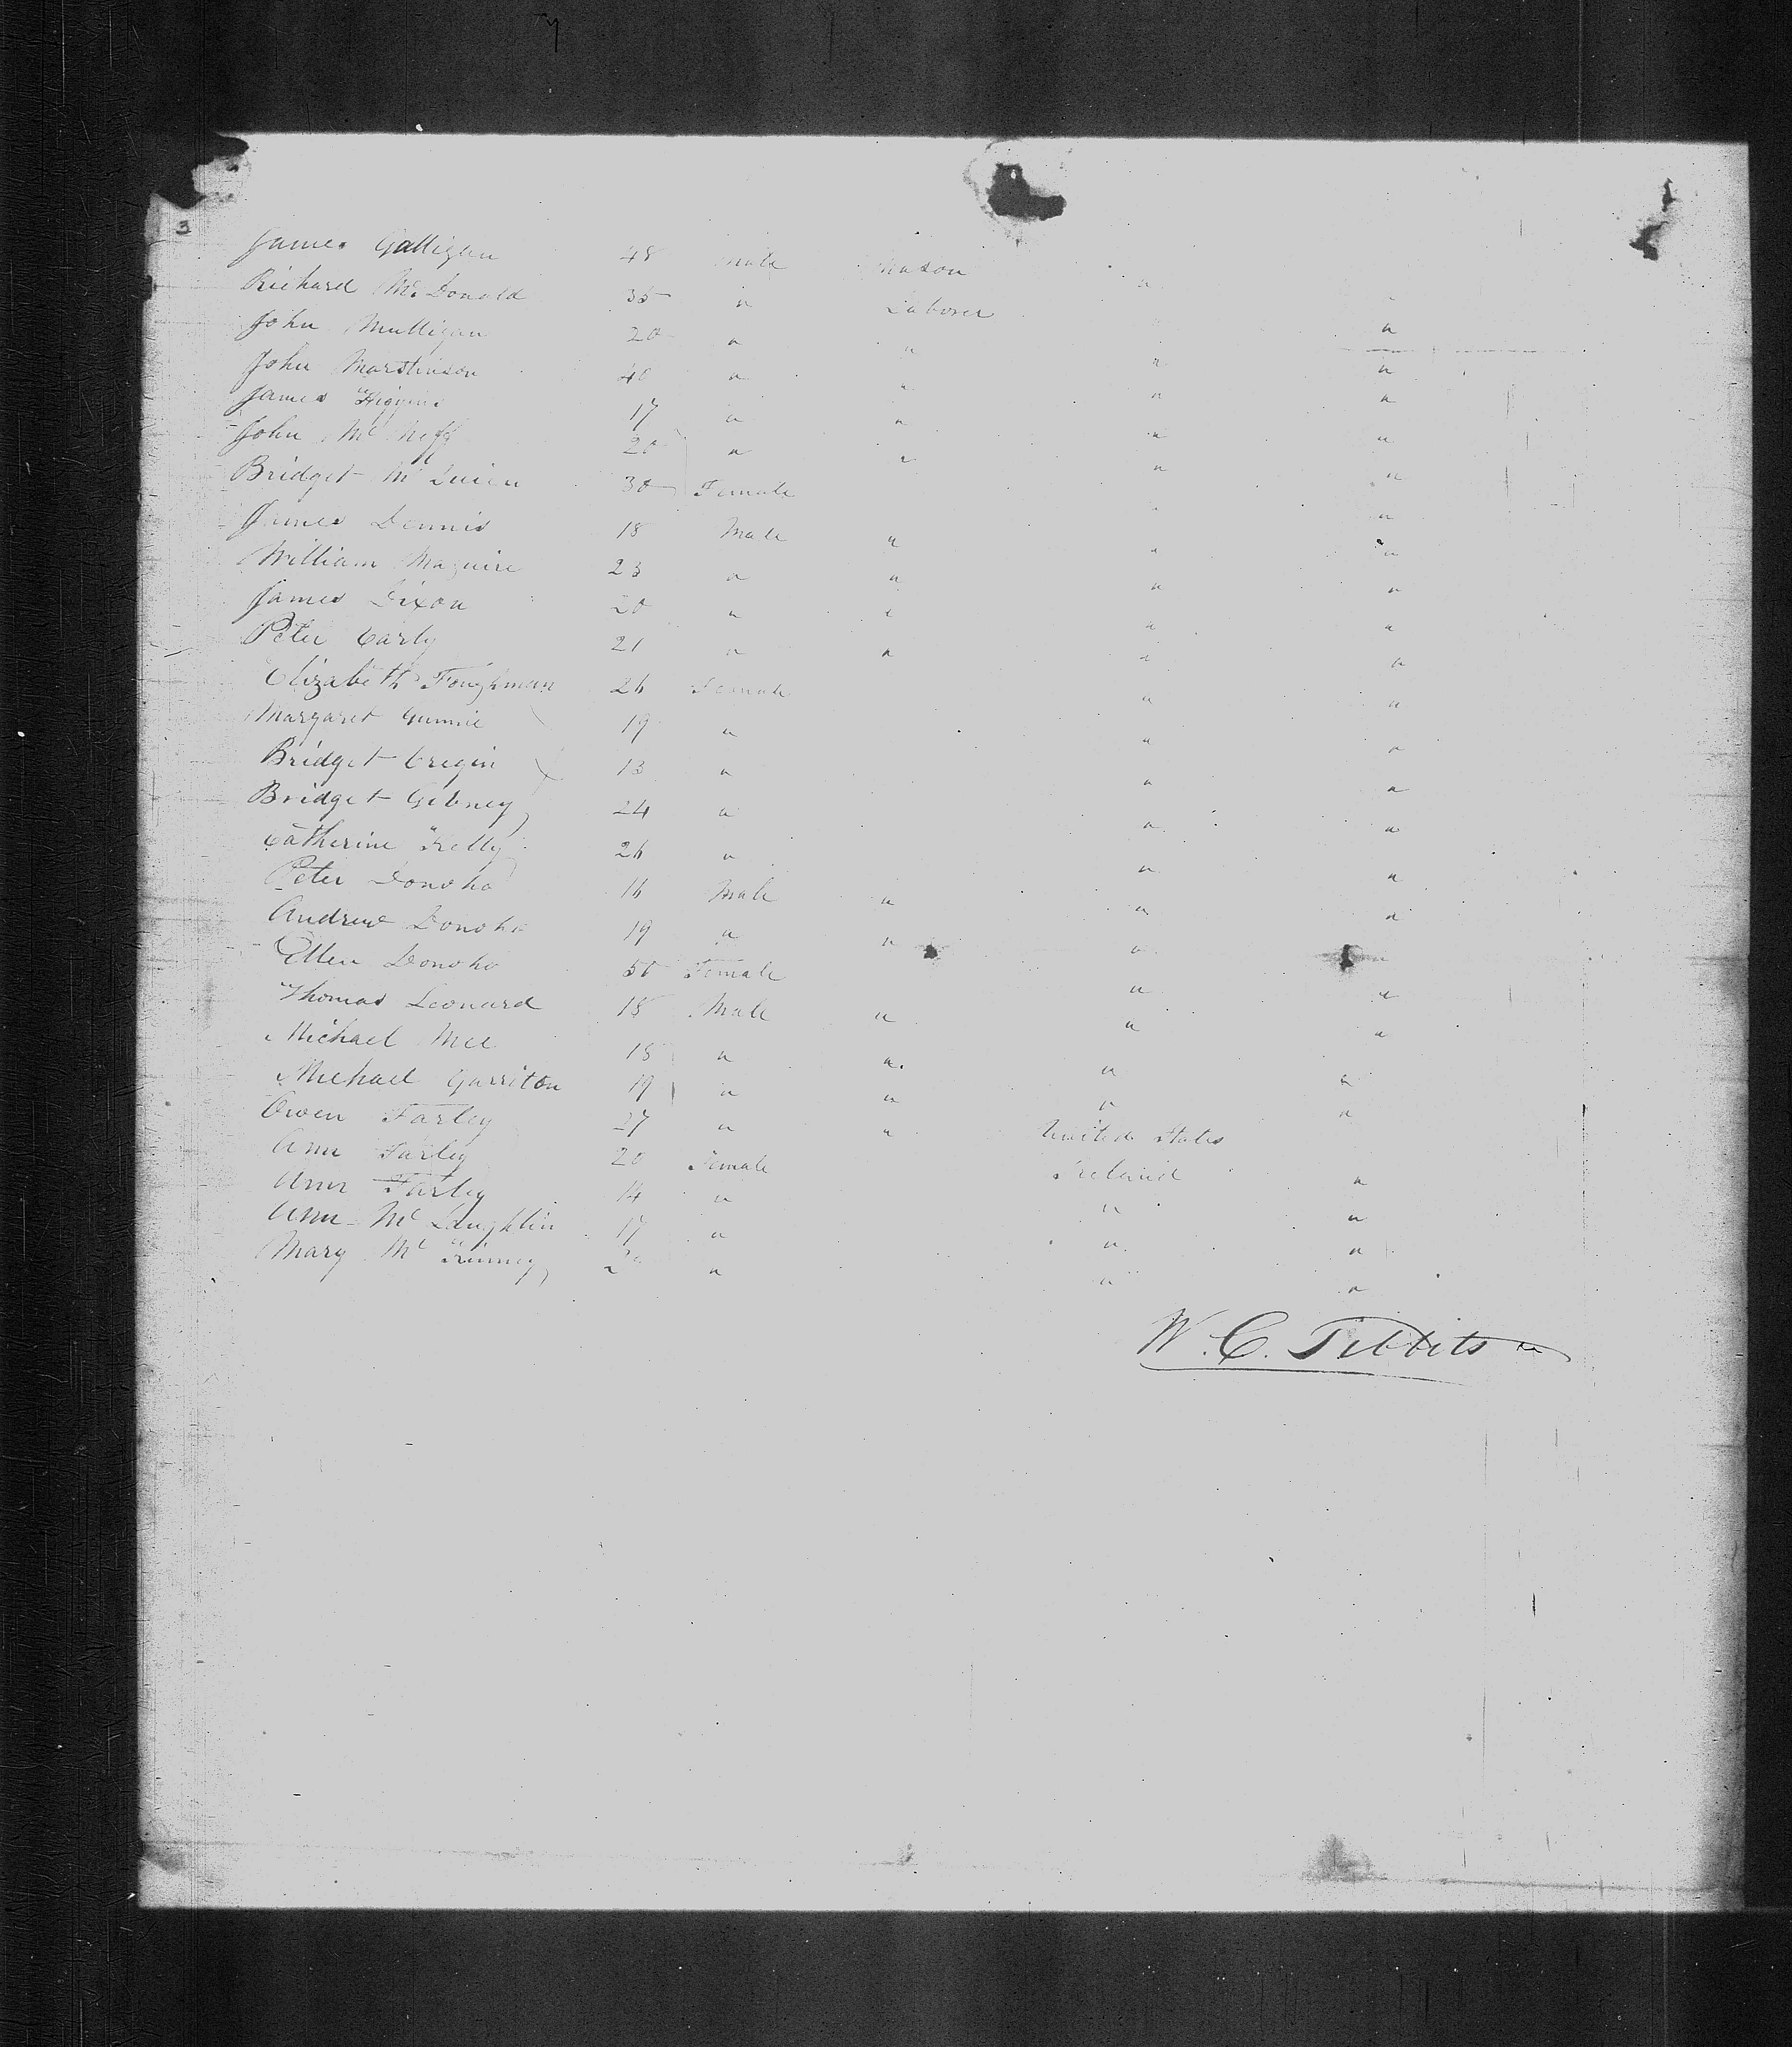 3
James Galligan 48 Male Mason "
Richard McDonald 35 " Laborer " "
John Mulligan 20 " " " "
John Marstinson 40 " " " "
James Higgins 17 " " " "
John McNiff 20 " " " "
Bridget 30 Female " "
James Dennis 18 Male " " "
William Maguire 23 " " " "
James Dixon 20 " " " "
Peter Carly 21 " " " "
Elizabeth Foughman 26 Female " "
Margaret Gunnie 19 " " "
Bridget Cregin 13 " " "
Bridget Gibney 24 " " "
Catherine Kelly 26 " " "
Peter Donoho 16 Male " " "
Andrew Donoho 19 " " " "
Ellen Donoho 50 Female " "
Thomas Leonard 18 Male " " "
Michael Mee 18 " " " "
Michael Garriton 19 " " " "
Owen Farley 27 " " United States
Ann Farley 20 Female Ireland "
Ann Farley 14 " " "
Ann McLaughlin 17 " " "
Mary McKinney " " "
W. C. Tibbits